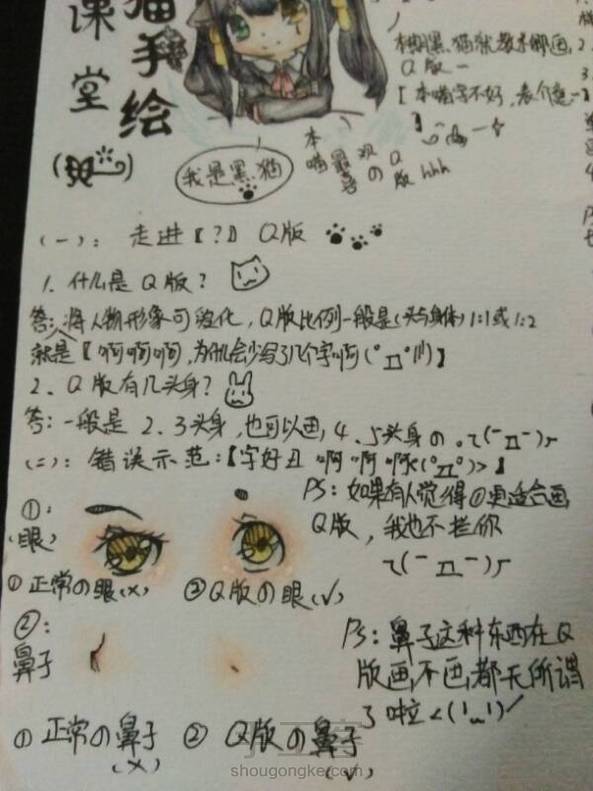 猫手绘
课堂
本喵黑猫就教你们画
Q版一
【本喵字不好,表介意一】
我是黑猫
本喵最喜欢のQ版hhh
(一):走进【?】Q版
1.什么是Q版?
答:将人物形象可爱化,Q版比例一般是(头与身体)1:1或1:2
就是【啊啊啊,为什么会少写了几个字啊(°ㅁ°lll)】
2、Q版有几头身?
答:一般是2、3头身,也可以画,4、5头身の。ㄟ(ˉㅁˉ)ㄏ
(二):错误示范:【字好丑啊啊啊(°ㅁ°)>】
①:
(眼)
PS:如果有人觉得①更适合画
Q版,我也不拦你
ㄟ(ˉㅁˉ)ㄏ
①正常の眼(×) ②Q版の眼(√)
②:
鼻子
PS:鼻子这种东西在Q
版画,不画,都无所谓
了啦
①正常の鼻子 ②Q版の鼻子
(×) (√)
手工客
shougongke.com